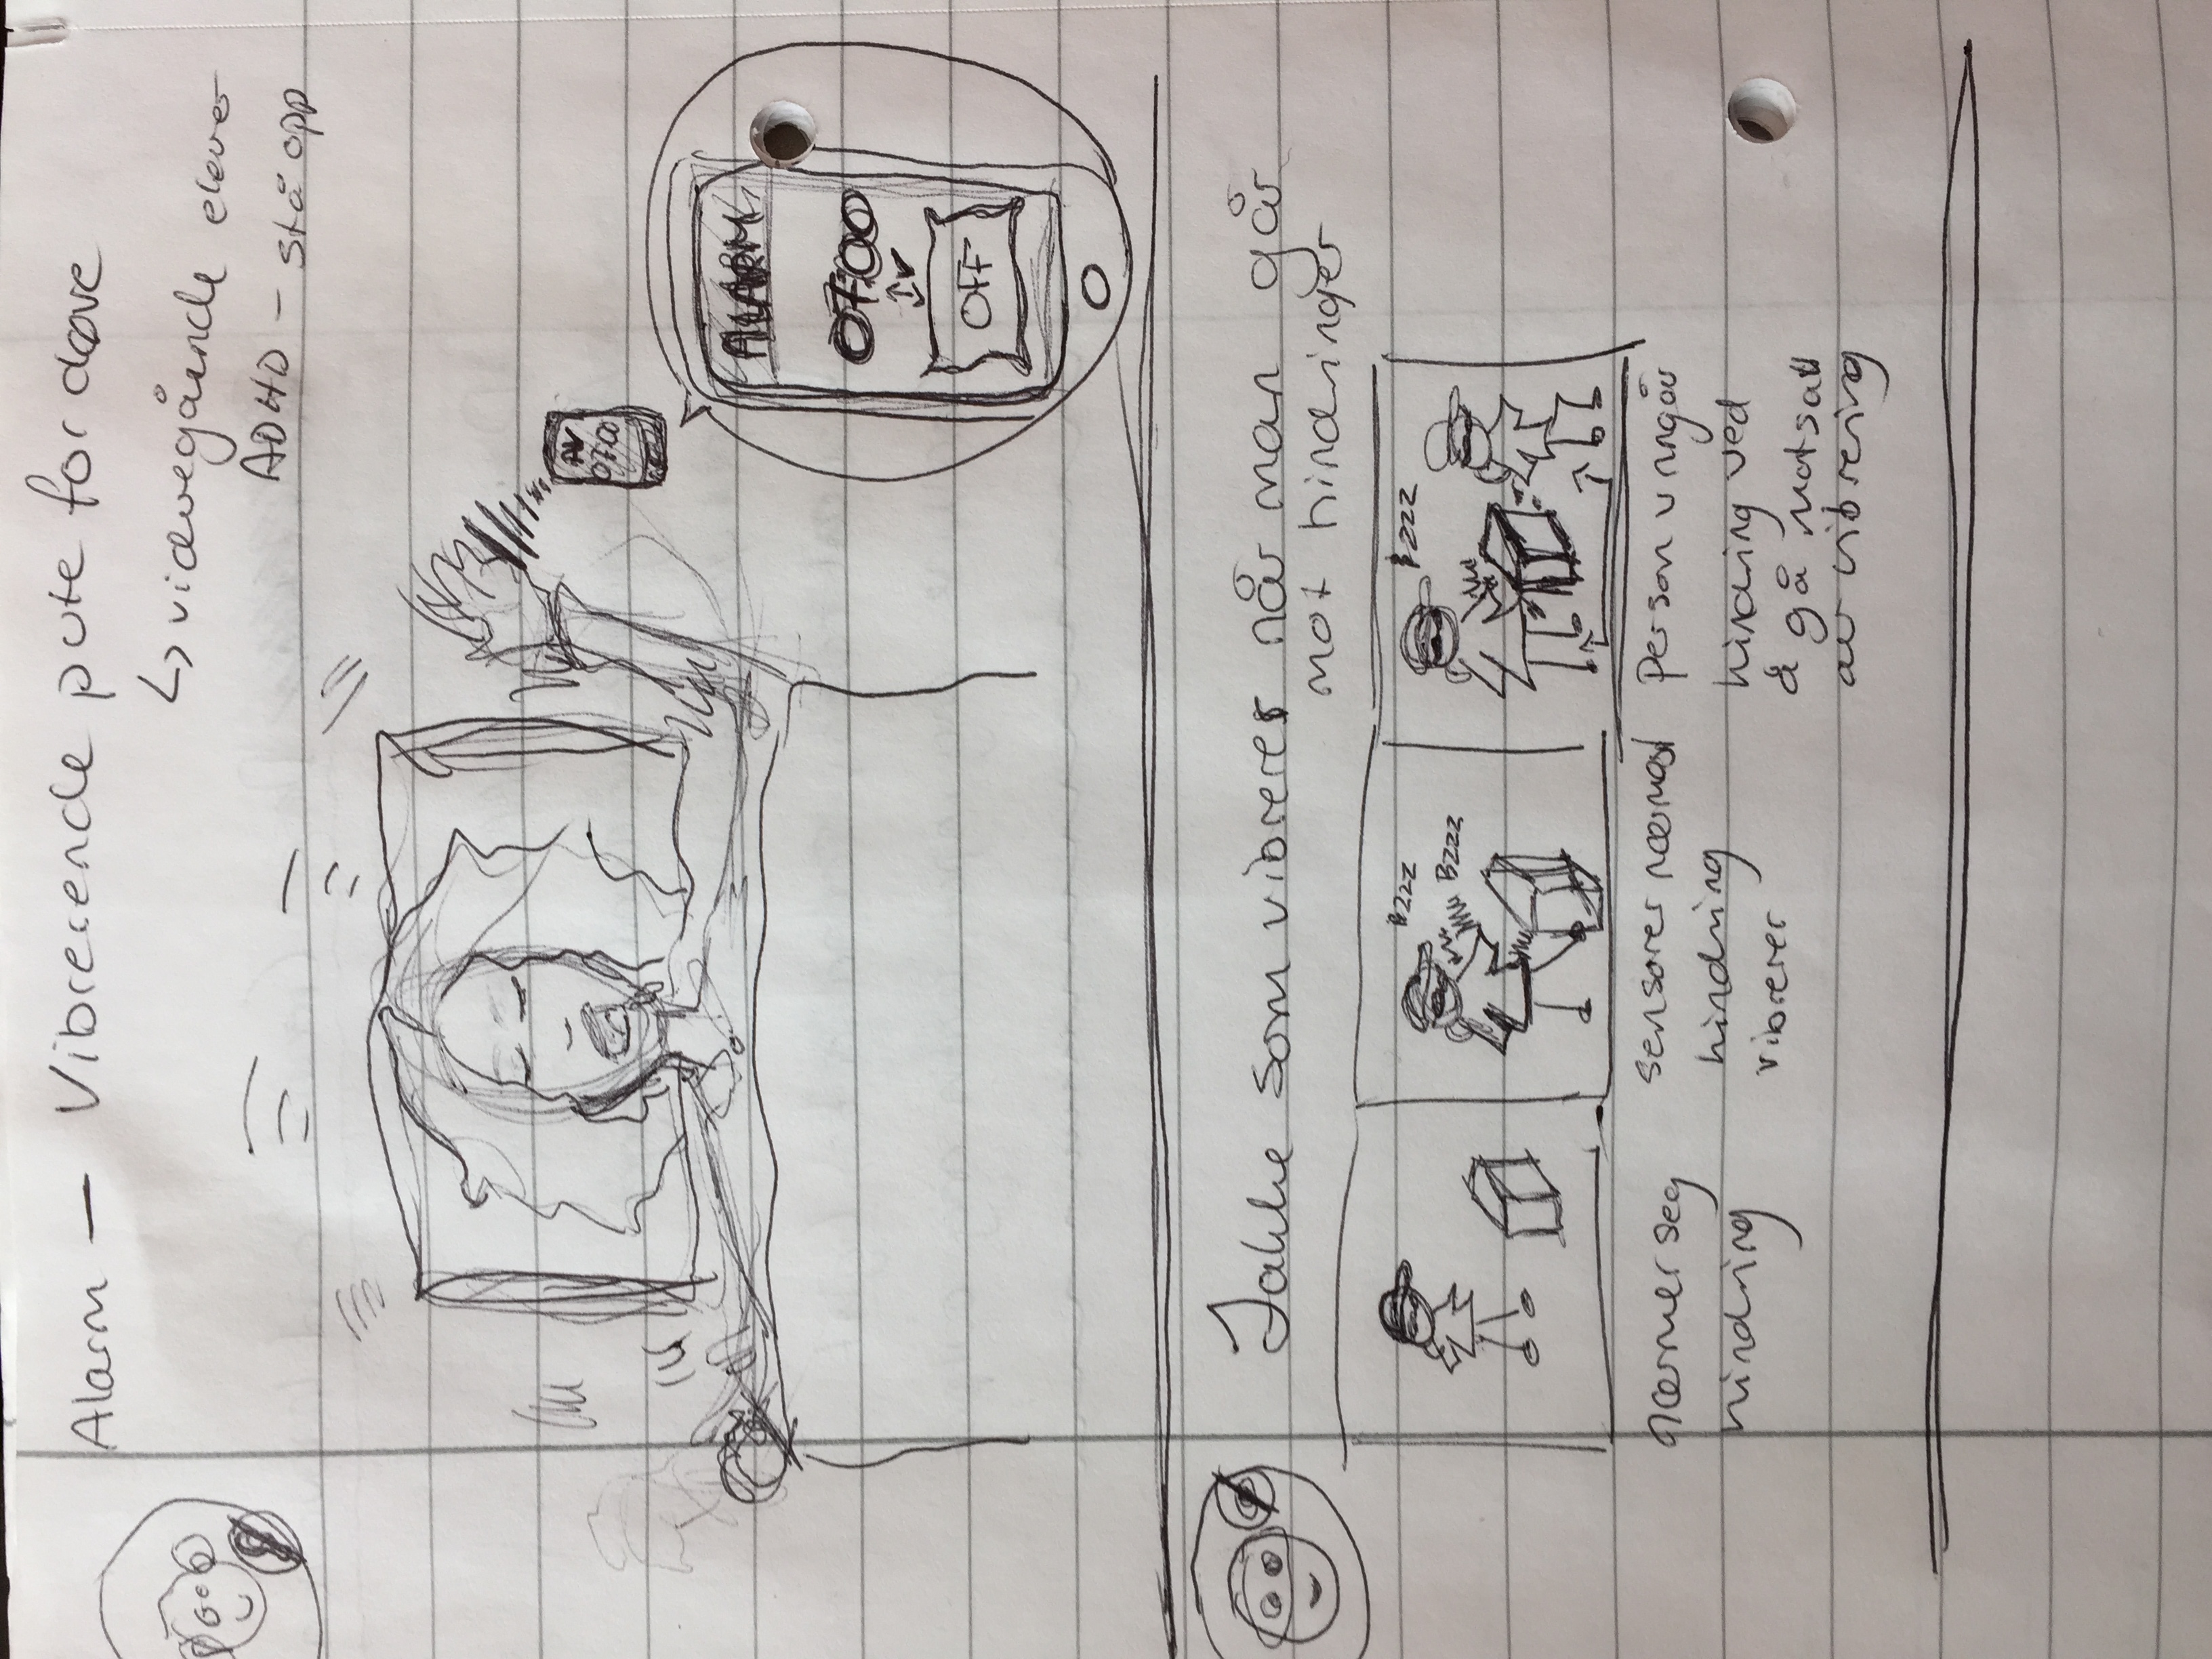 Alarm — Vibrerende pute for døve
↳ videregående elever
ADHD – stå opp
AV
07.00
ALARM
07:00
OFF
Jakke som vibrerer når man går
mot hindringer
BZZZ
BZZZ
BZZZ
nærmer seg
hindring
sensorer nærmest
hindring
vibrerer
person unngår
hindring ved
å gå motsatt
av vibrering